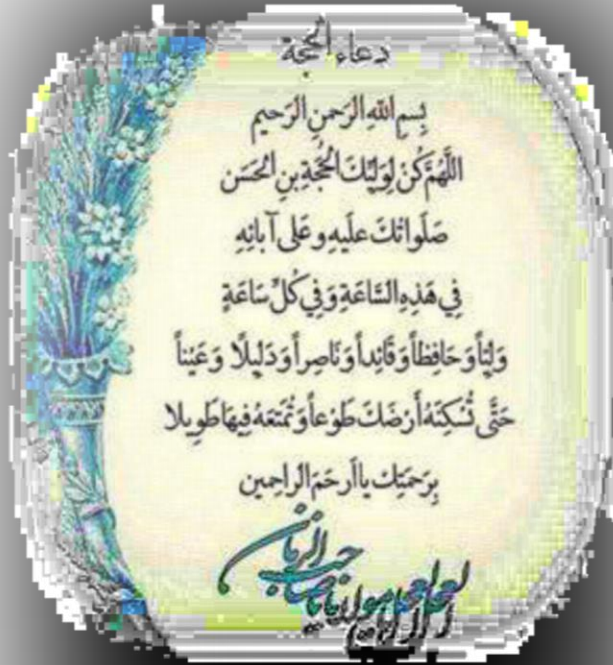 دعاء الحجة
بِسمِ اللهِ الرَحمنِ الرَحيم
اللَّهُمَّ كُنْ لِوَلِيِّكَ الحُجَّةِ بنِ الحَسَن
صَلَواتُكَ عَلَيهِ وعَلى آبائِهِ
فِي هَذِهِ السَّاعَةِ وَفِي كُلِّ سَاعَةٍ
وَلِيّاً وَحَافِظاً وَقَائِداً وَنَاصِراً وَدَلِيلًا وَعَيْناً
حَتَّى تُسْكِنَهُ أَرْضَكَ طَوْعاً وَتُمَتِّعَهُ فِيهَا طَوِيلا
بِرَحمَتِك يا اَرحَمَ الراحِمين
العجل العجل يا مولاي يا صاحب الزمان